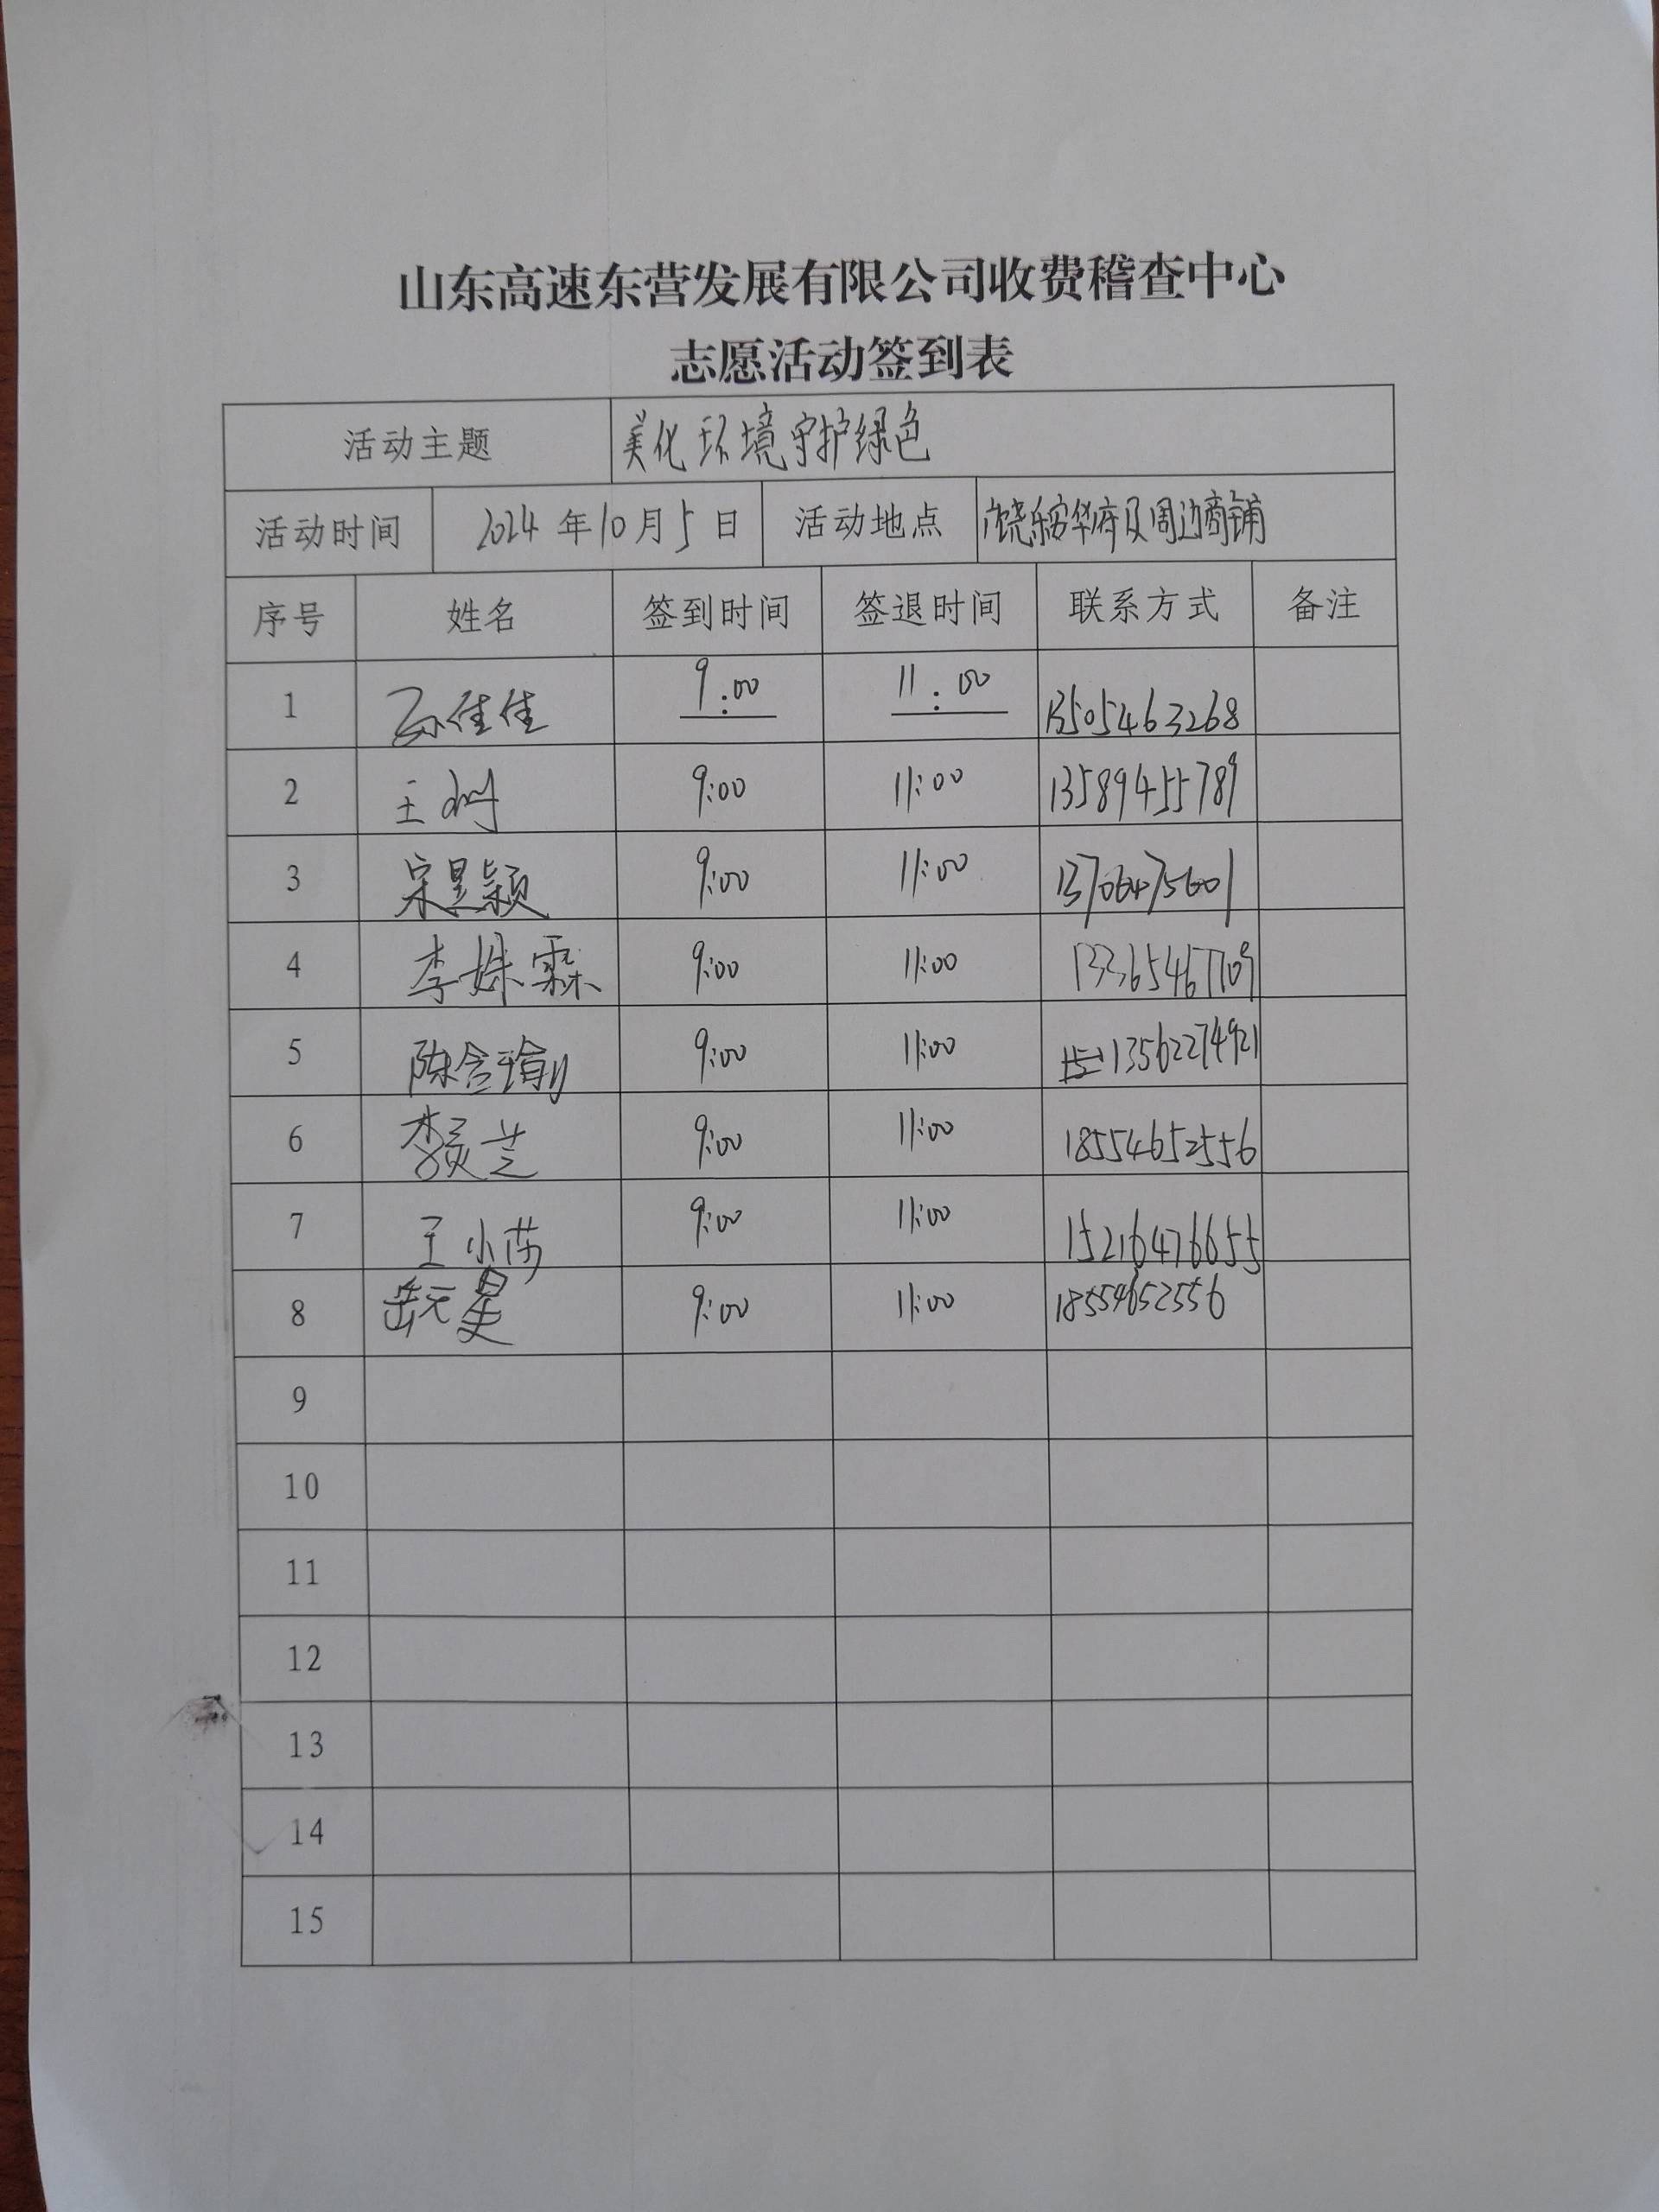 山东高速东营发展有限公司收费稽查中心
志愿活动签到表
活动主题 美化环境守护绿色
活动时间 2024年10月5日 活动地点 广饶乐安华府及周边商铺
序号 姓名 签到时间 签退时间 联系方式 备注
1 孙佳佳 9:00 11:00 13505463268
2 王 9:00 11:00 13589455789
3 宋昱颖 9:00 11:00 13706475601
4 李姝霖 9:00 11:00 13365467709
5 陈含瑜 9:00 11:00 13562274921
6 李灵芝 9:00 11:00 18554652556
7 王小 9:00 11:00 15216476655
8 岳元昊 9:00 11:00 18554652556
9
10
11
12
13
14
15